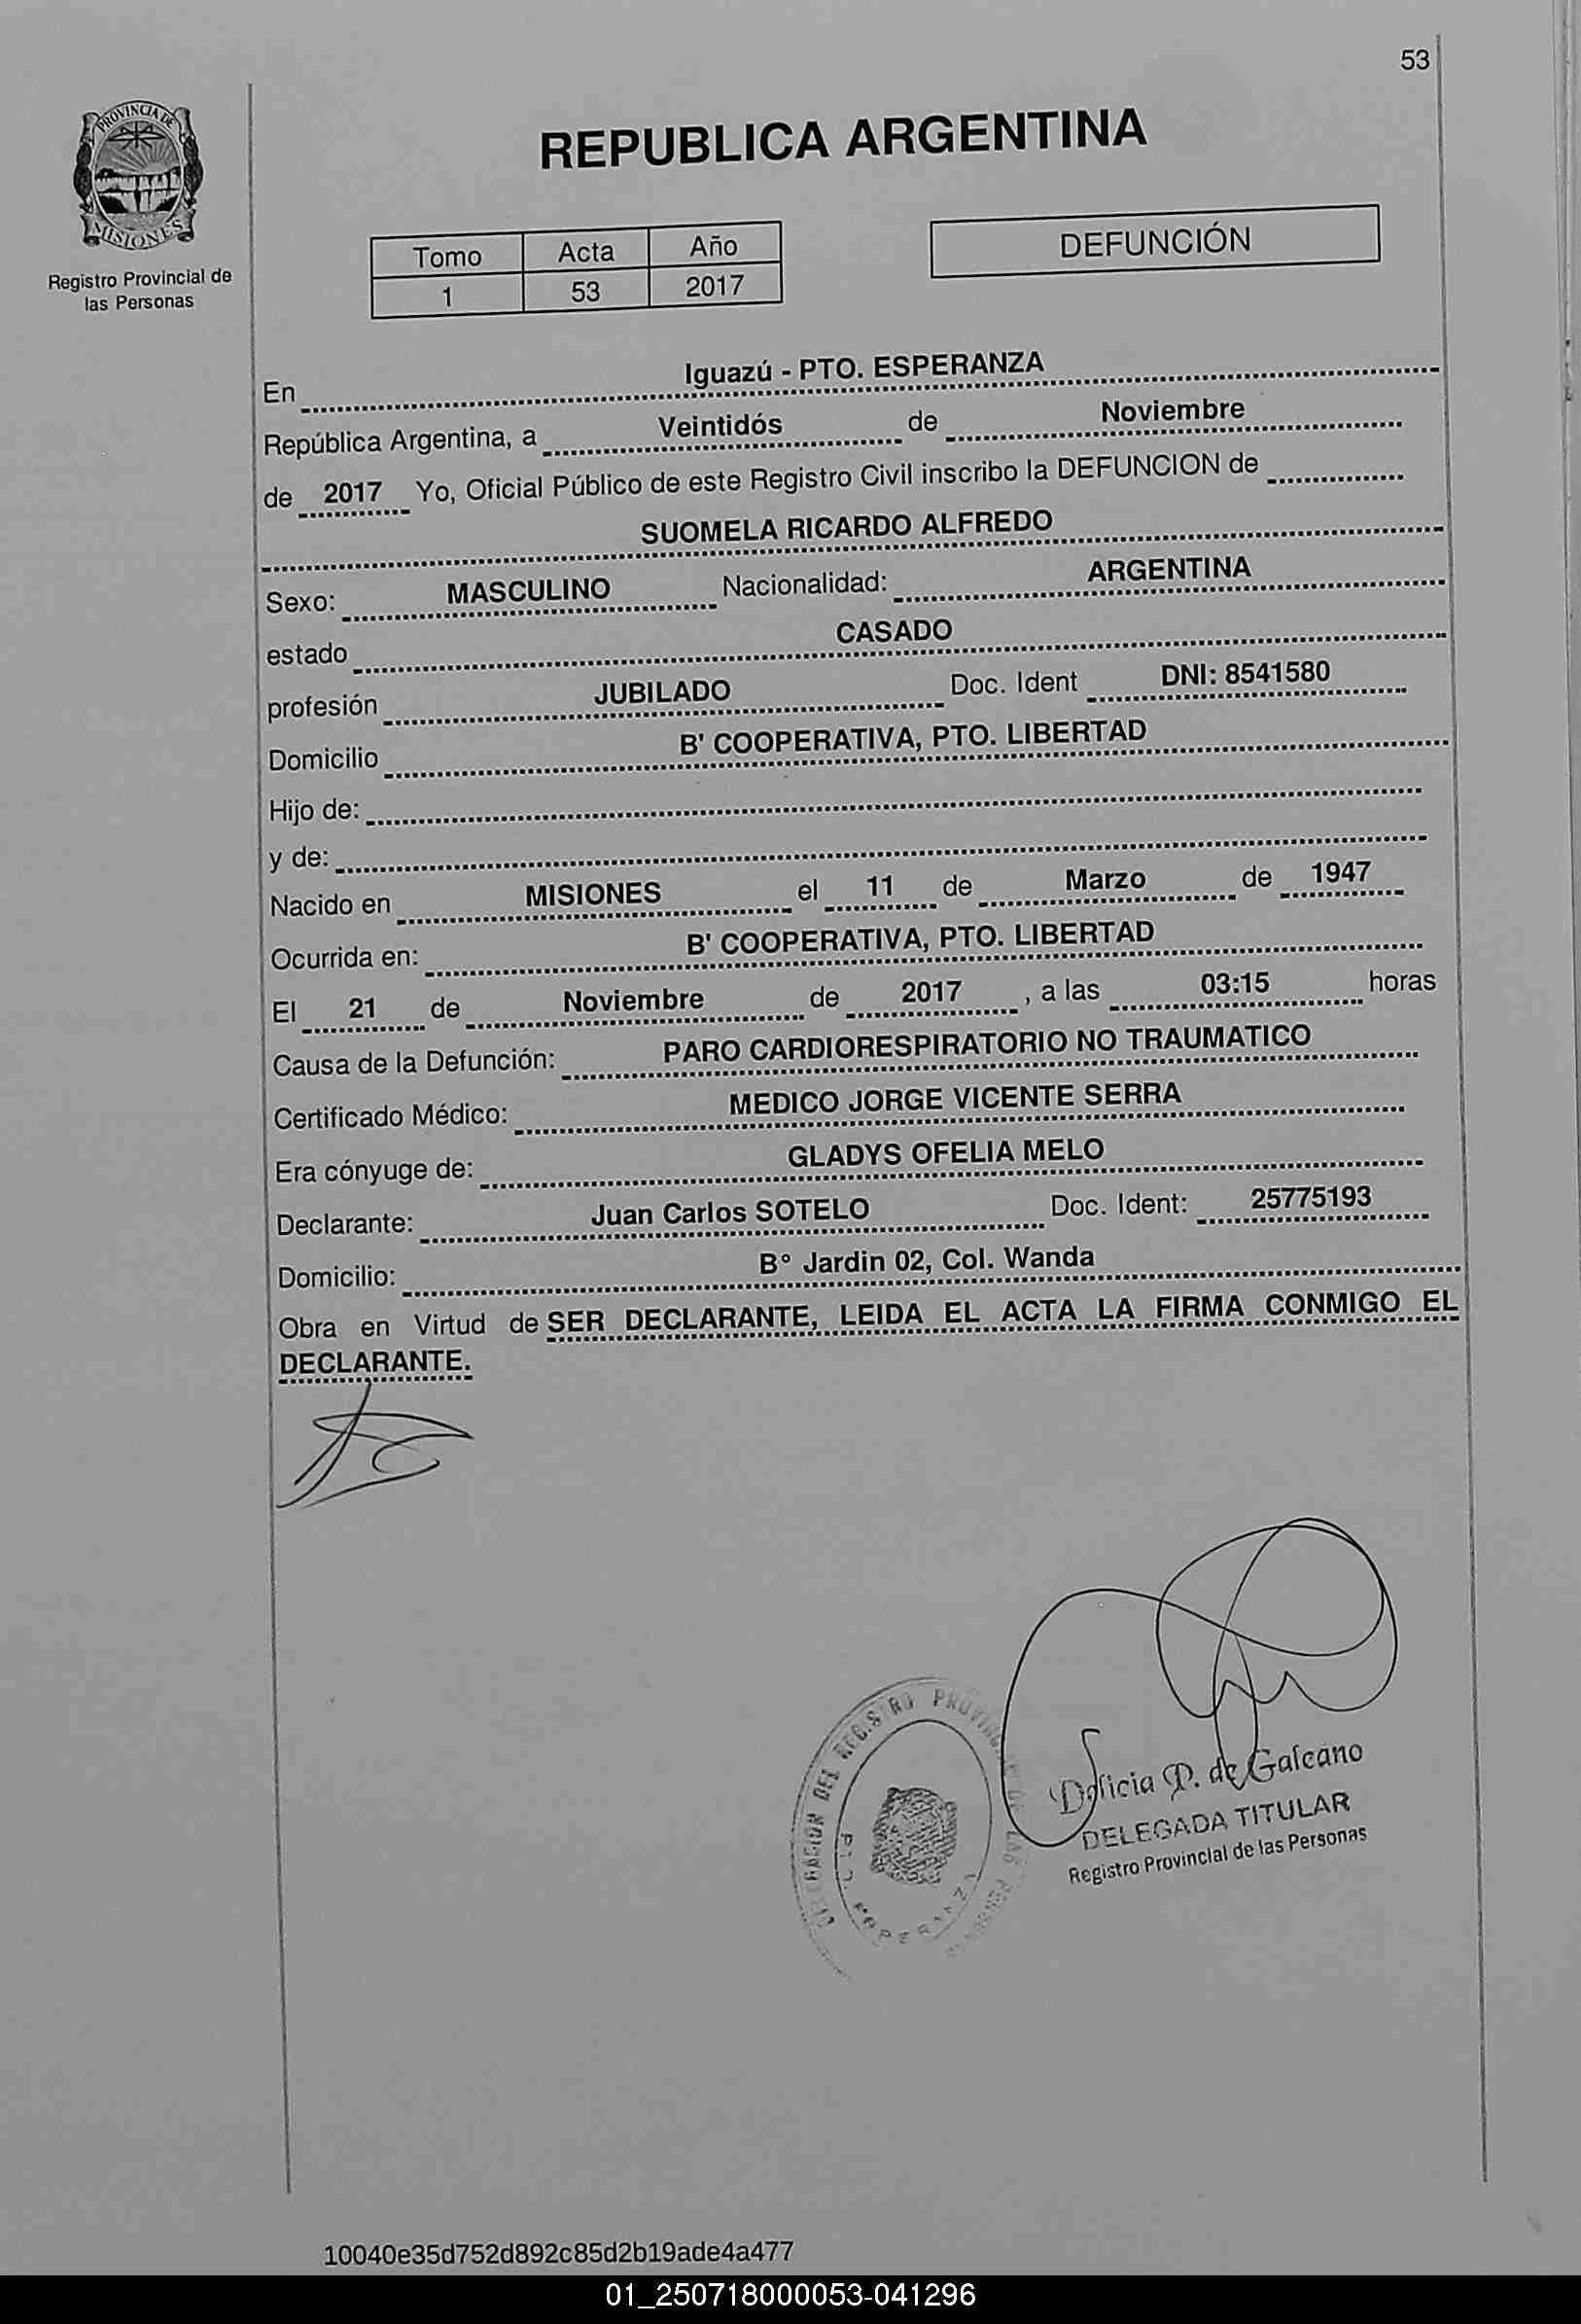 53
PROVINCIA DE
MISIONES
Registro Provincial de
las Personas
REPUBLICA ARGENTINA
Tomo Acta Año
1 53 2017
DEFUNCIÓN
En Iguazú - PTO. ESPERANZA
República Argentina, a Veintidós de Noviembre
de 2017 Yo, Oficial Público de este Registro Civil inscribo la DEFUNCION de
SUOMELA RICARDO ALFREDO
Sexo: MASCULINO Nacionalidad: ARGENTINA
estado CASADO
profesión JUBILADO Doc. Ident DNI: 8541580
Domicilio B' COOPERATIVA, PTO. LIBERTAD
Hijo de:
y de:
Nacido en MISIONES el 11 de Marzo de 1947
Ocurrida en: B' COOPERATIVA, PTO. LIBERTAD
El 21 de Noviembre de 2017 , a las 03:15 horas
Causa de la Defunción: PARO CARDIORESPIRATORIO NO TRAUMATICO
Certificado Médico: MEDICO JORGE VICENTE SERRA
Era cónyuge de: GLADYS OFELIA MELO
Declarante: Juan Carlos SOTELO Doc. Ident: 25775193
Domicilio: B° Jardin 02, Col. Wanda
Obra en Virtud de SER DECLARANTE, LEIDA EL ACTA LA FIRMA CONMIGO EL
DECLARANTE.
DEL REGISTRO
P. de Galeano
DELEGADA TITULAR
Registro Provincial de las Personas
10040e35d752d892c85d2b19ade4a477
01_250718000053-041296